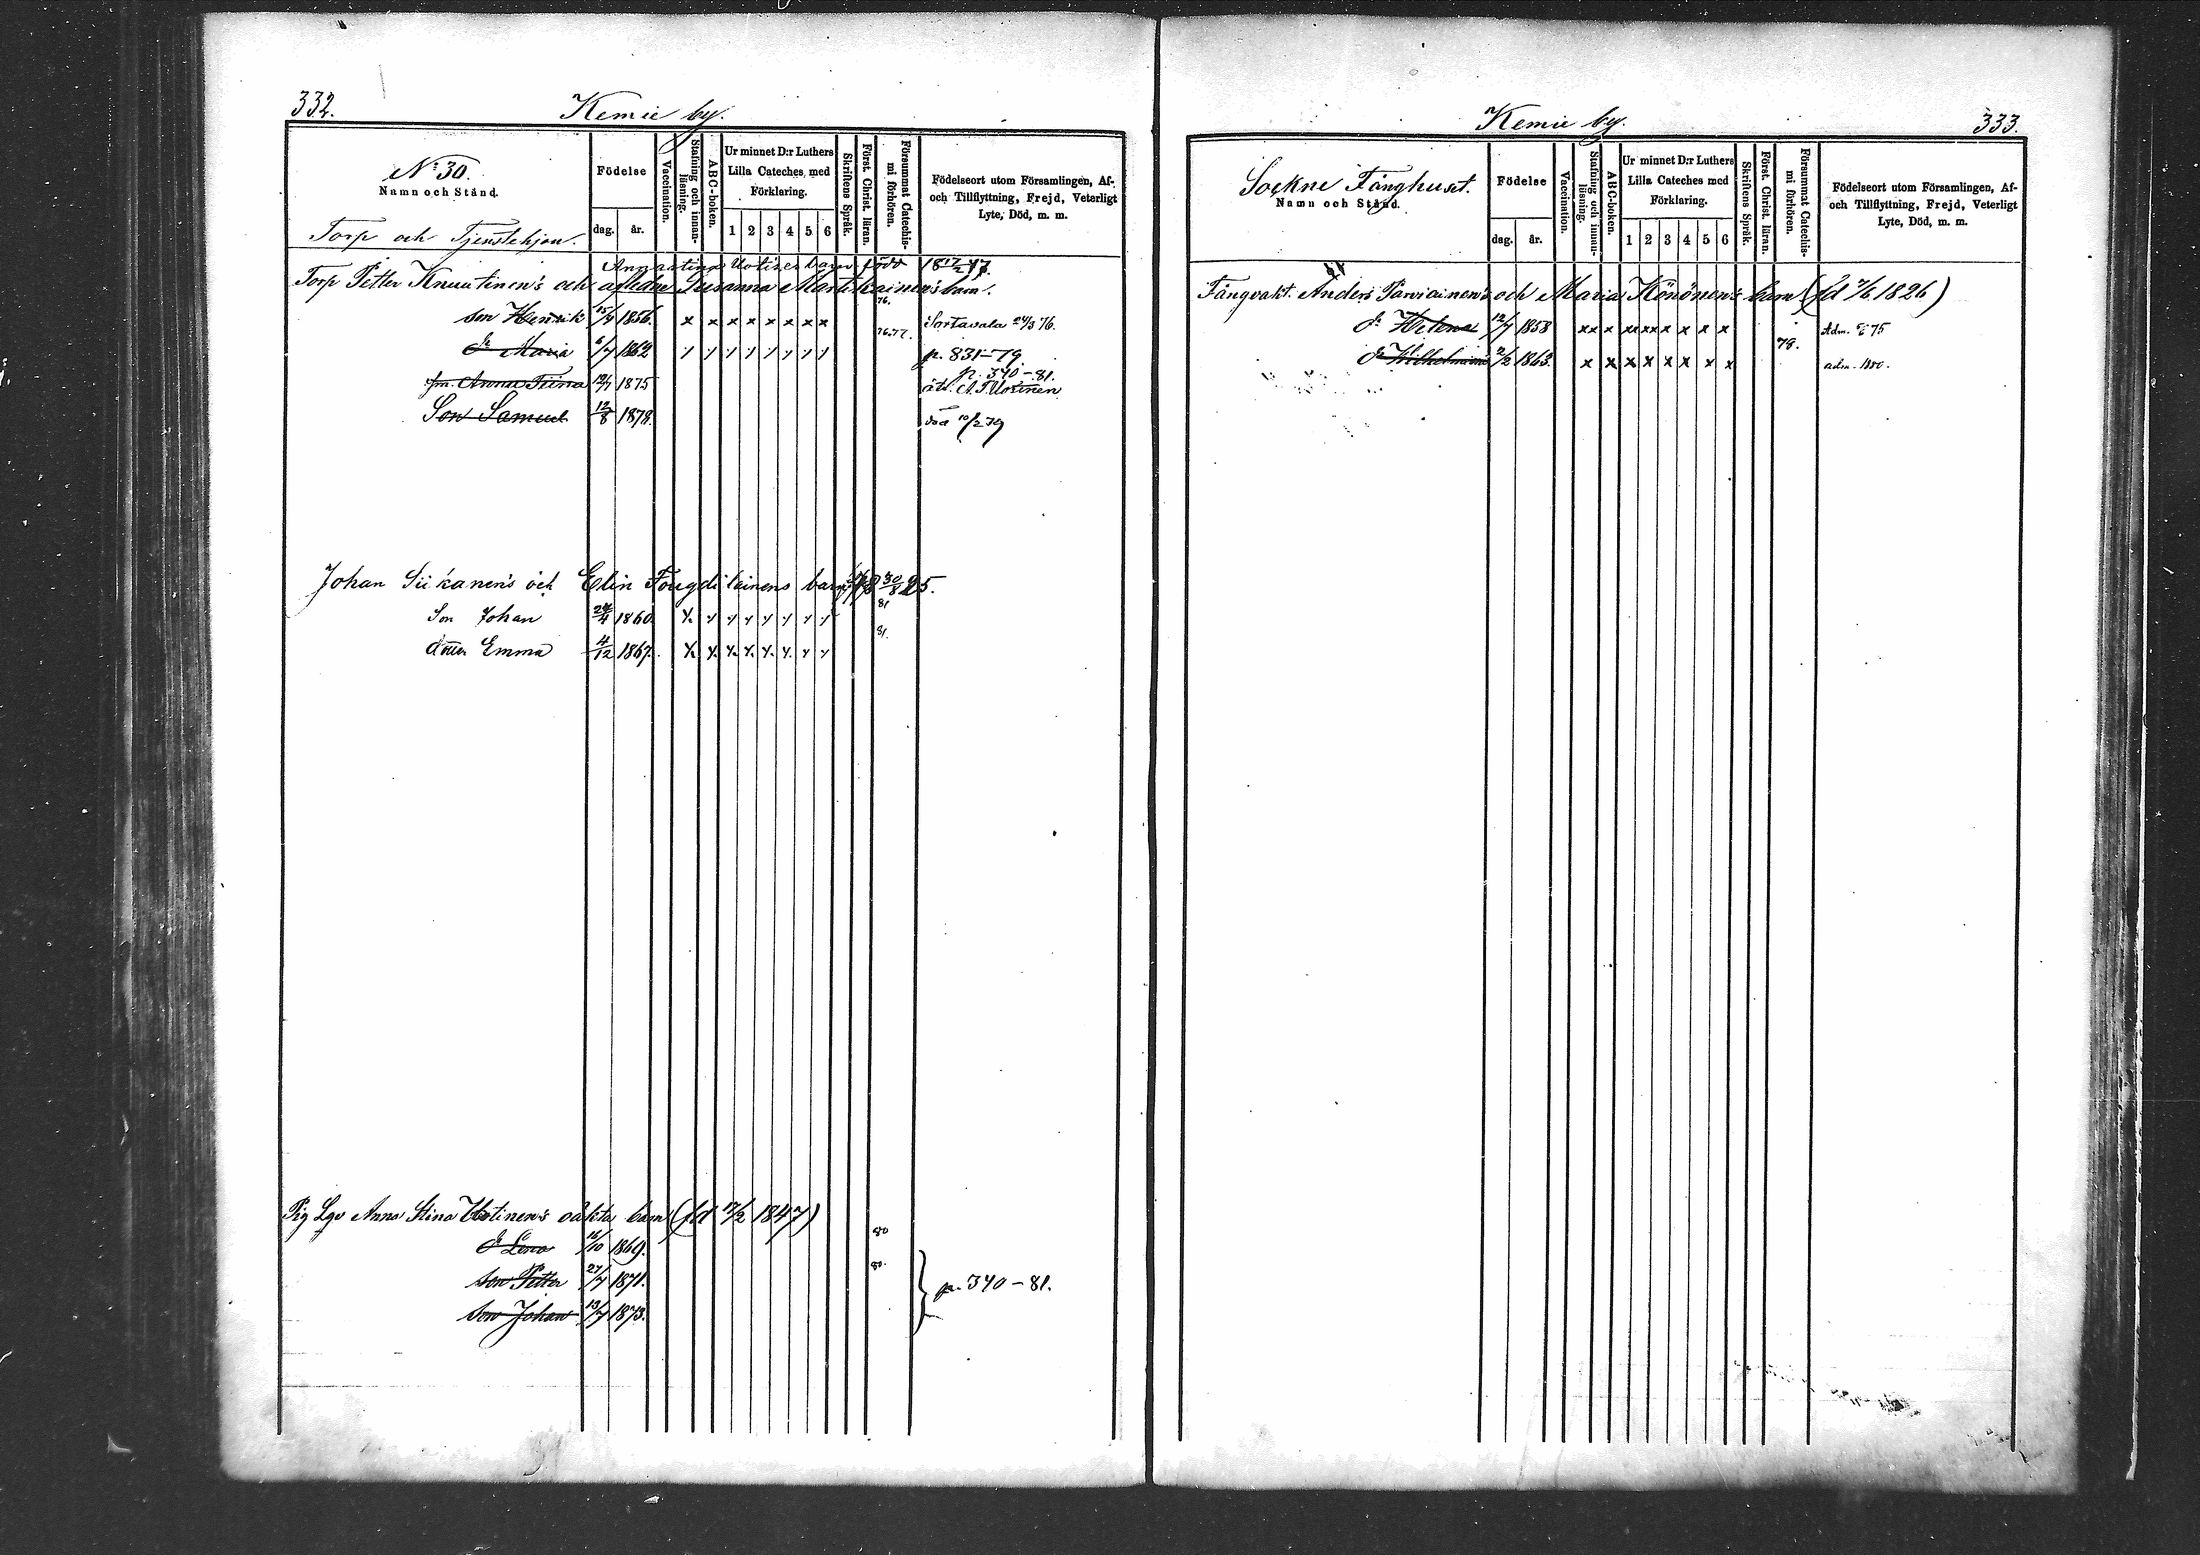 332.
Kemie by.
No 30.
Namn och Stånd.
Torp och Tjenstehjon.
Födelse
dag.
år.
Vaccination.
Stafning och innanläsning.
ABC-boken.
Ur minnet D:r Luthers Lilla Cateches med Förklaring.
1 2 3 4 5 6
Skriftens Språk.
Först. Christ. läran.
Försummat Catechismi förhören.
Födelseort utom Församlingen, Af- och Tillflyttning, Frejd, Veterligt Lyte, Död, m. m.
Anna Stina Uotines barn född 18 17/2 47.
Torp Petter Knuutinen's och afledne Susanna Martikainen's barn.
76.
son Henrik 15/7 1856. x x x x x x x x x 76.77. Sortavala 24/3 76.
dr Maria 6/7 1862 p. 831-79.
p. 340-81.
fm. Anna Tiina 1875 A. T. Uotinen
Son Samuel 12/8 1878. död 10/2 79
Johan Siikanen's och Elin Fougdilainens barn 30/8 25.
81
Son Johan 24/4 1860.
81.
dotter Emma 4/12 1867.
Pig Lgo Anna Stina Uotinen's oäkta barn (fd 17/2 1847)
80
dr Lena 16/10 1869.
80.
son Petter 27/7 1871.
p. 340-81.
son Johan 13/7 1873.
Kemie by.
333.
Sockne Fånghuset.
Namn och Stånd.
Födelse
dag.
år.
Vaccination.
Stafning och innanläsning.
ABC-boken.
Ur minnet D:r Luthers Lilla Cateches med Förklaring.
1 2 3 4 5 6
Skriftens Språk.
Först. Christ. läran.
Försummat Catechismi förhören.
Födelseort utom Församlingen, Af- och Tillflyttning, Frejd, Veterligt Lyte, Död, m. m.
Fångvakt. Anders Parviainen's och Maria Könönen's barn (fd 7/6 1826)
dr Helena 12/7 1858 xx x xx xx x x x x Adm. 75
78.
dr Wilhelmina 2/2 1863. x x x x x x x x adm. 1880.